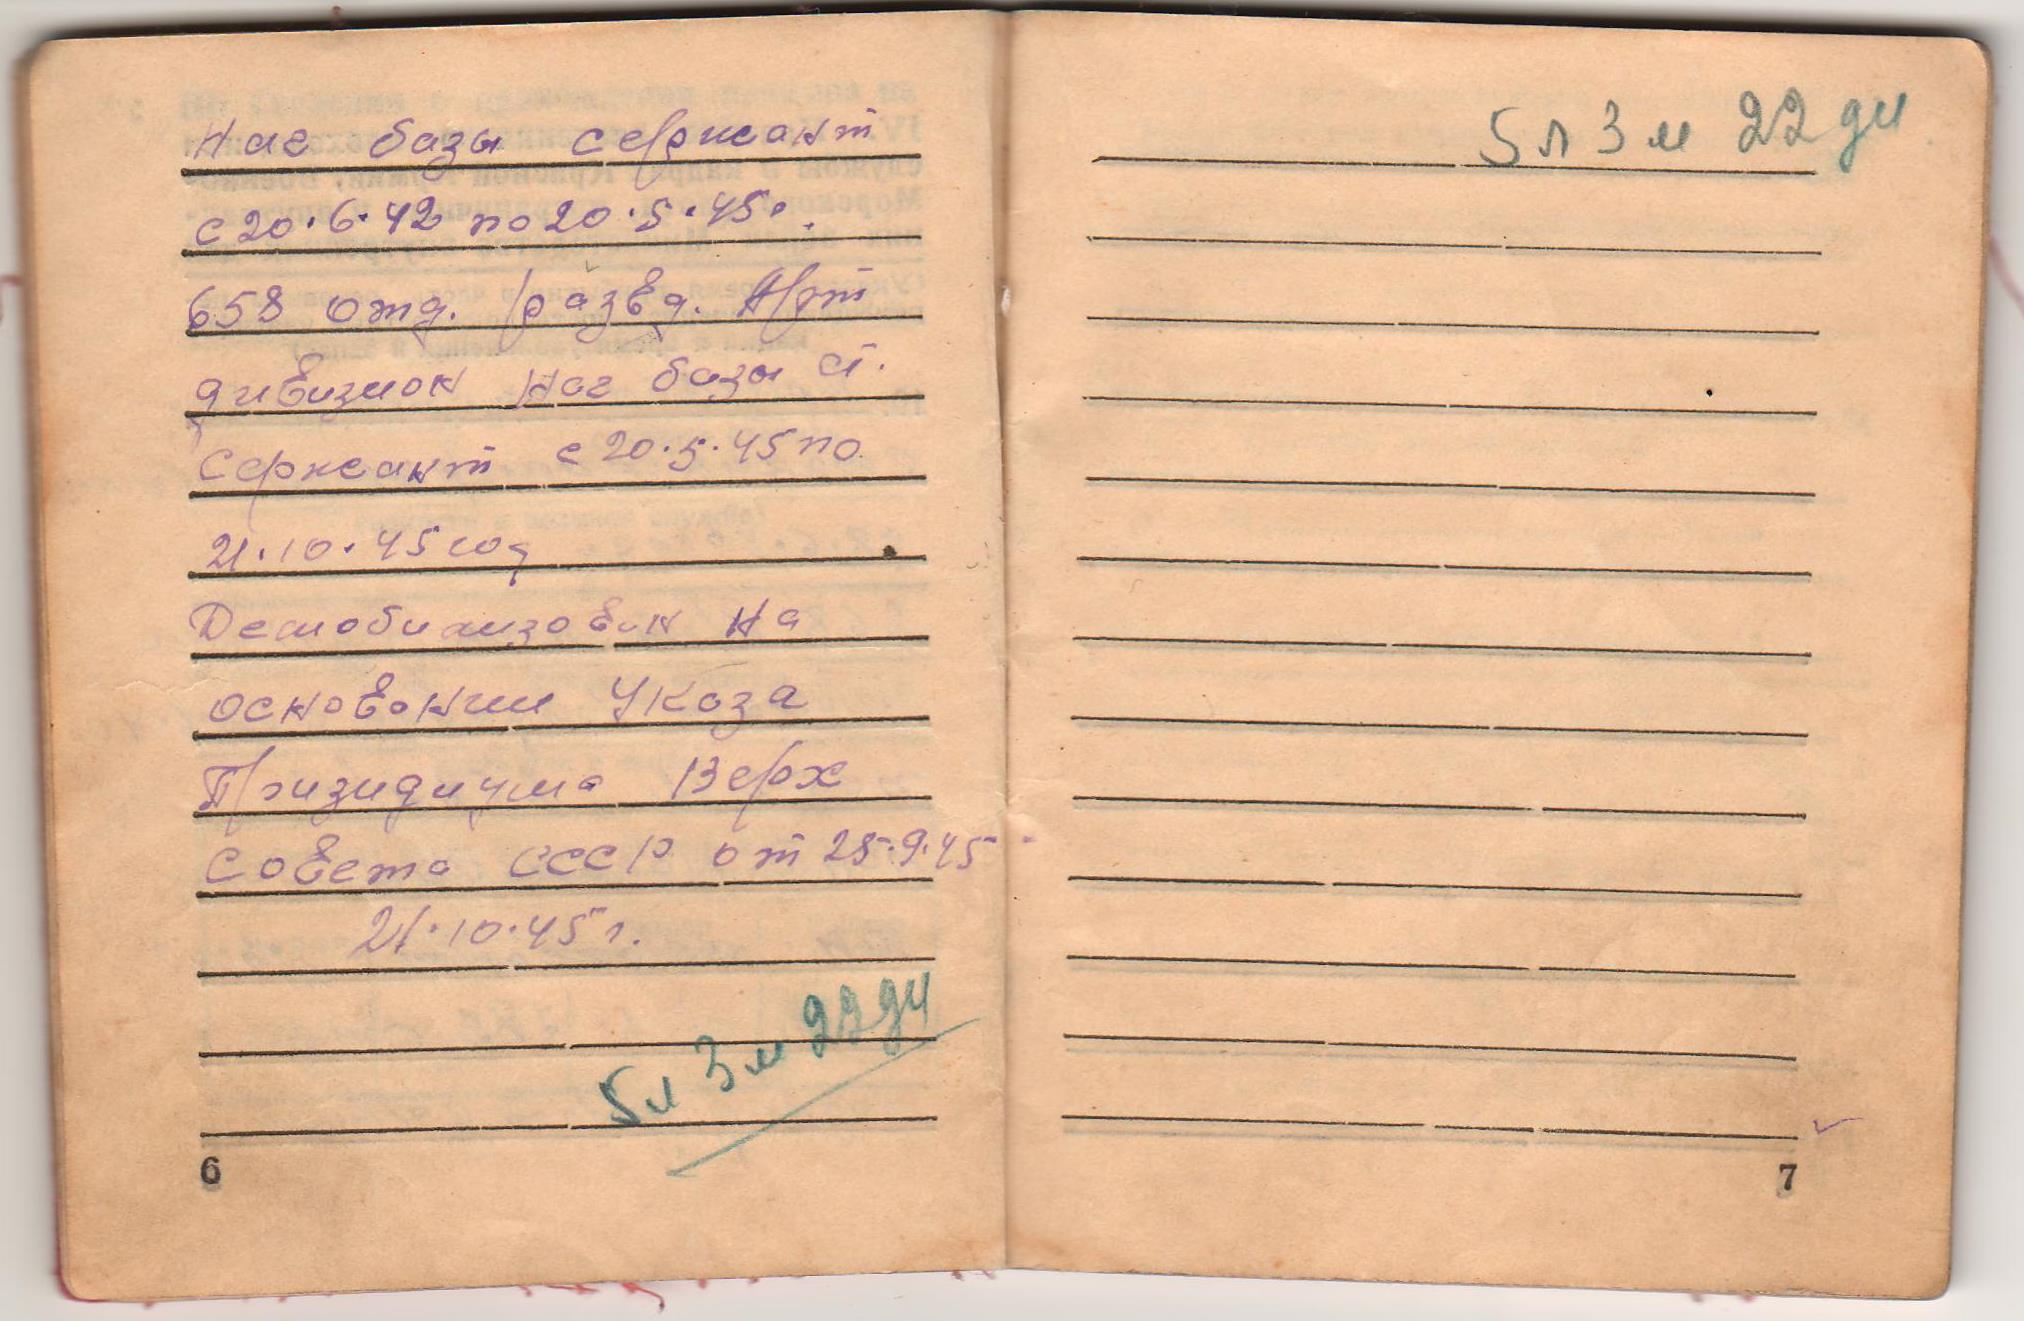 Нач базы сержант
с 20.6.42 по 20.5.45.
658 отд. развед. Арт
дивизион Нач базы ст.
Сержант с 20.5.45 по
21.10.45 год
Демобилизован на
основании Указа
Призидиума Верх
Совета СССР от 25.9.45
21.10.45 г.
5 л 3 м 22 дн
6
5 л 3 м 22 дн
7